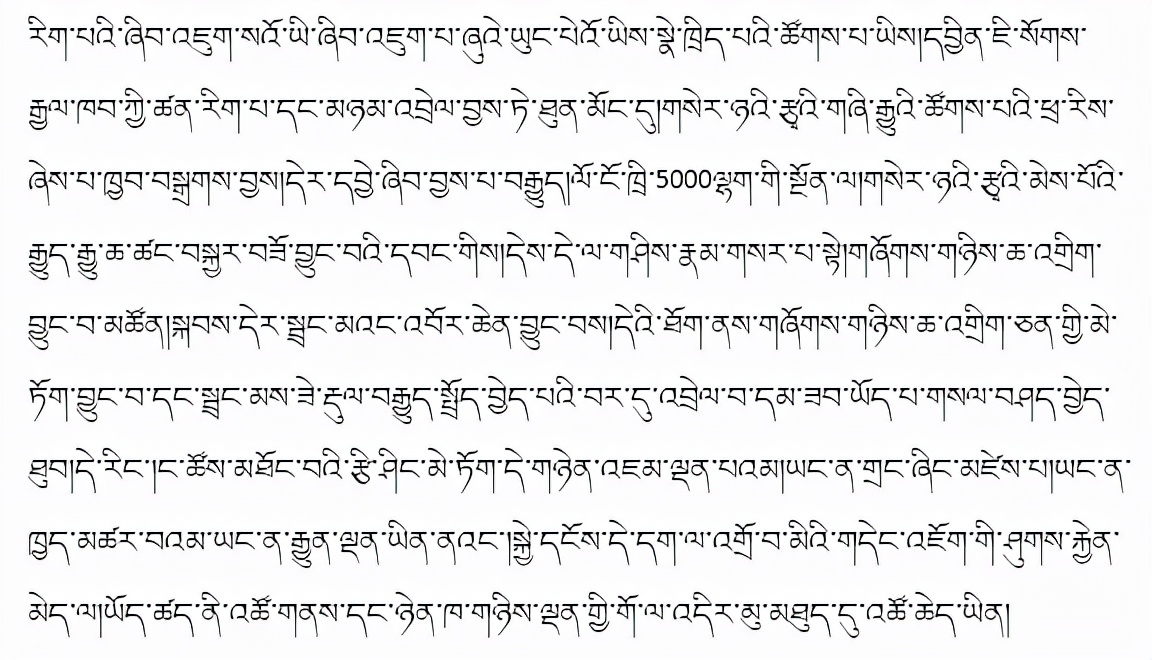 རིག་པའི་ཞིབ་འཇུག་སའོ་ཡི་ཞིབ་འཇུག་པ་ཞུའེ་ཡུང་པེའོ་ཡིས་སྣེ་ཁྲིད་པའི་ཚོགས་པ་ཡིས།དབྱིན་ཇི་སོགས་
རྒྱལ་ཁབ་ཀྱི་ཚན་རིག་པ་དང་མཉམ་འབྲེལ་བྱས་ཏེ་ཐུན་མོང་དུ།གསེར་ཉའི་རྩྭའི་གཞི་རྒྱུའི་ཚོགས་པའི་ཕྲ་རིས་
ཞེས་པ་ཁྱབ་བསྒྲགས་བྱས།དེར་དབྱེ་ཞིབ་བྱས་པ་བརྒྱུད།ལོ་ངོ་ཁྲི་5000ལྷག་གི་སྔོན་ལ།གསེར་ཉའི་རྩྭའི་མེས་པོའི་
རྒྱུད་རྒྱུ་ཆ་ཚང་བསྐྱར་བཟོ་བྱུང་བའི་དབང་གིས།དེས་དེ་ལ་གཤིས་རྣམ་གསར་པ་སྟེ།གཞོགས་གཉིས་ཆ་འགྲིག་
བྱུང་བ་མཚོན།སྐབས་དེར་སྦྲང་མའང་འབོར་ཆེན་བྱུང་བས།དེའི་ཐོག་ནས་གཞོགས་གཉིས་ཆ་འགྲིག་ཅན་གྱི་མེ་
ཏོག་བྱུང་བ་དང་སྦྲང་མས་ཟེ་རྡུལ་བརྒྱུད་སྤྲོད་བྱེད་པའི་བར་དུ་འབྲེལ་བ་དམ་ཟབ་ཡོད་པ་གསལ་བཤད་བྱེད་
ཐུབ།དེ་རིང་།ང་ཚོས་མཐོང་བའི་རྩི་ཤིང་མེ་ཏོག་དེ་གཉེན་འཇམ་ལྡན་པའམ།ཡང་ན་གྲང་ཞིང་མཛེས་པ།ཡང་ན་
ཁྱད་མཚར་བའམ་ཡང་ན་རྒྱུན་ལྡན་ཡིན་ནའང་།སྐྱེ་དངོས་དེ་དག་ལ་འགྲོ་བ་མིའི་གདེང་འཇོག་གི་ཤུགས་རྐྱེན་
མེད་ལ།ཡོད་ཚད་ནི་འཚོ་གནས་དང་ཉེན་ཁ་གཉིས་ལྡན་གྱི་གོ་ལ་འདིར་མུ་མཐུད་དུ་འཚོ་ཆེད་ཡིན།